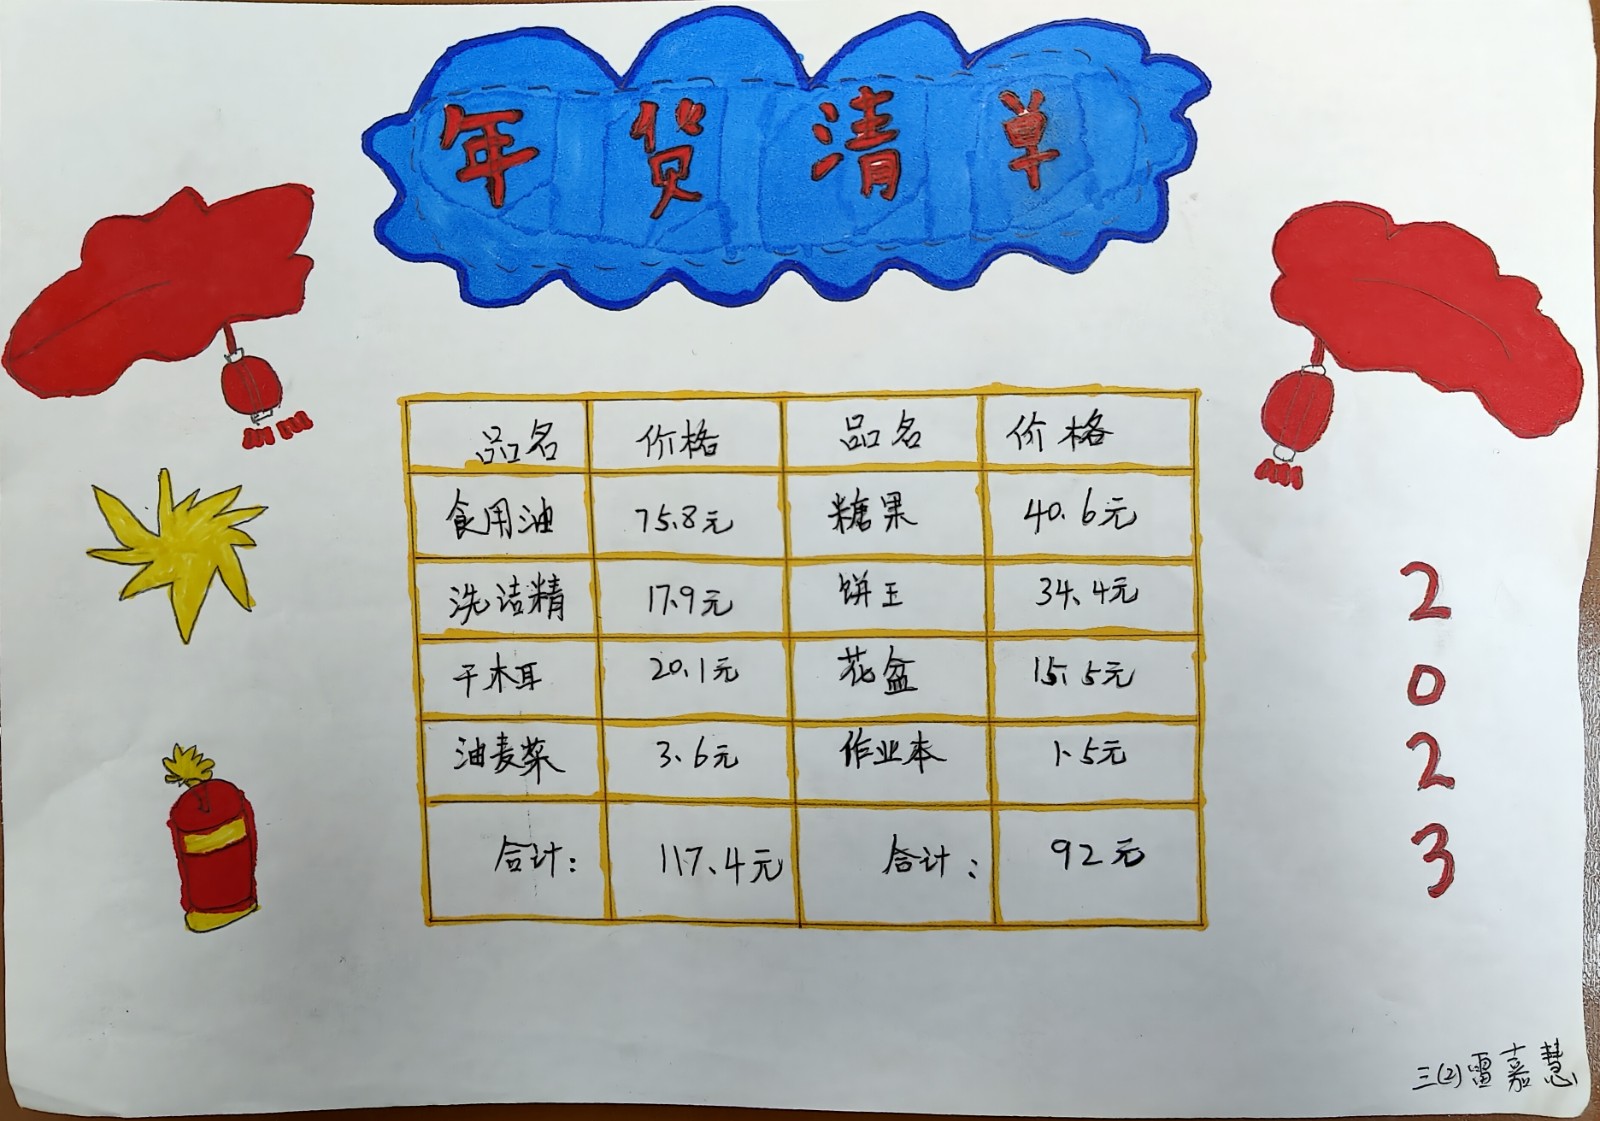 年货清单
品名 价格 品名 价格
食用油 75.8元 糖果 40.6元
洗洁精 17.9元 饼王 34.4元
干木耳 20.1元 花盆 15.5元
油麦菜 3.6元 作业本 1.5元
合计: 117.4元 合计: 92元
2
0
2
3
三(2)雷嘉慧